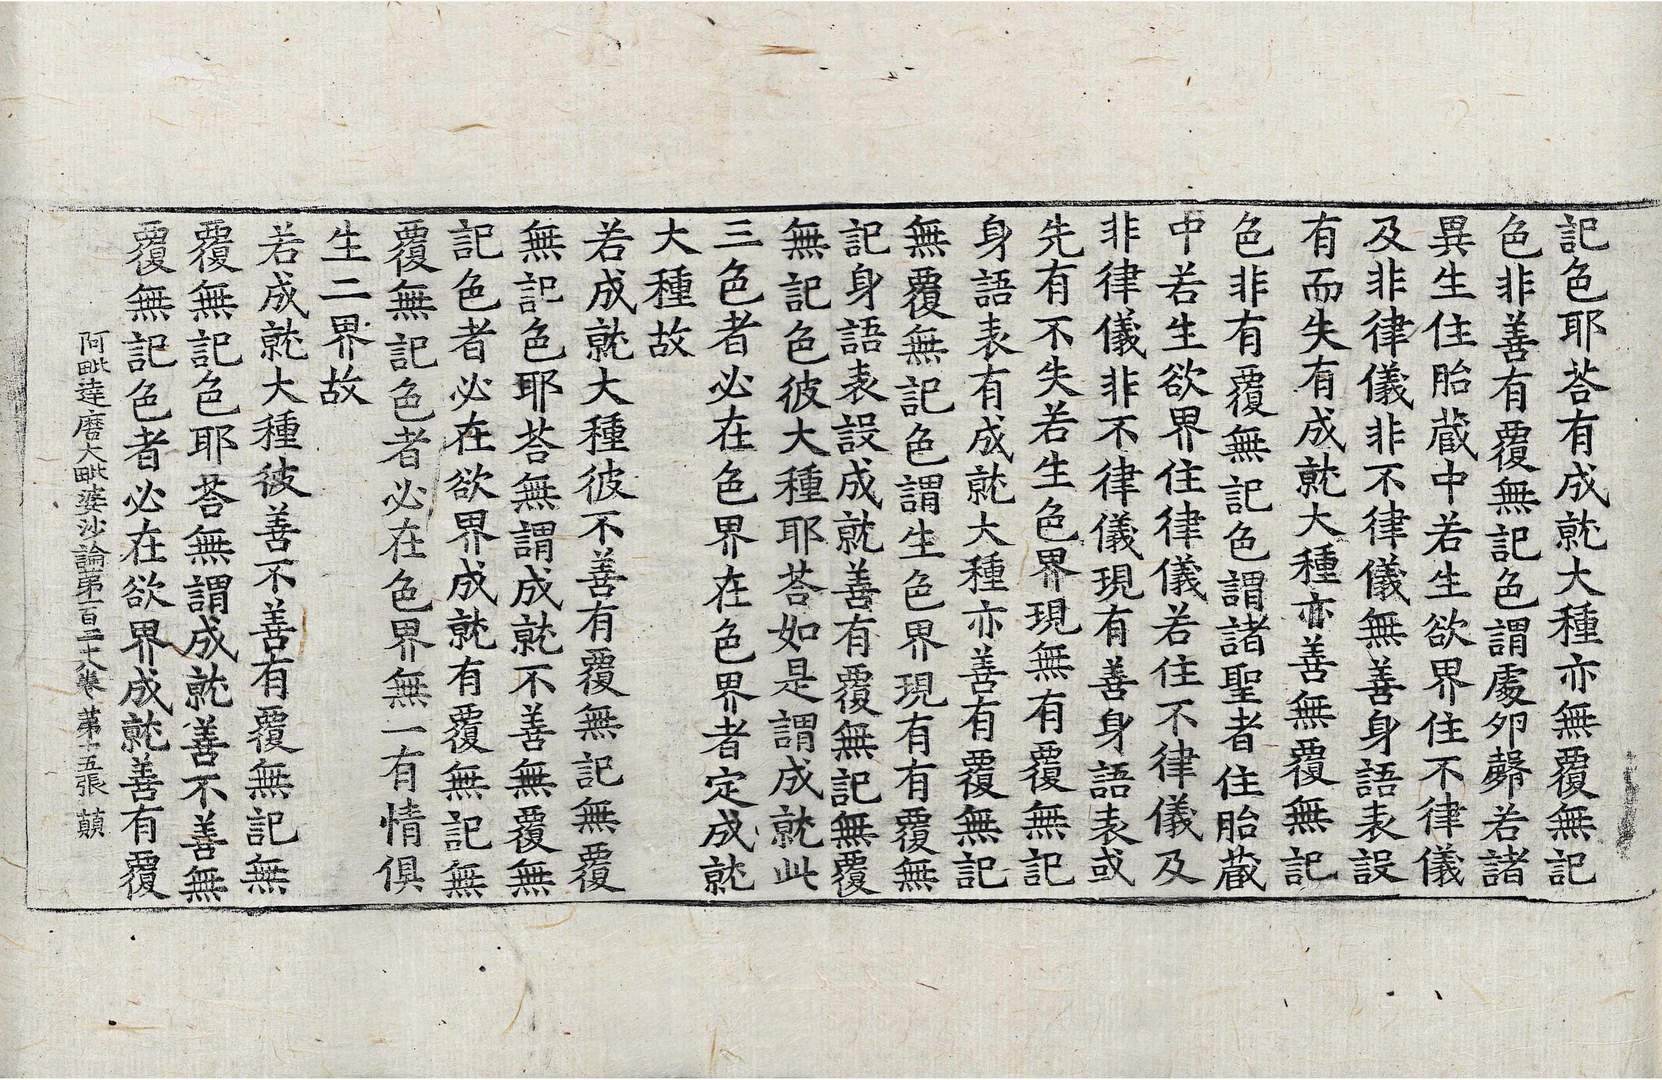 記色耶荅有成就大種亦無覆無記
色非善有覆無記色謂處卵㲉若諸
異生住胎藏中若生欲界住不律儀
及非律儀非不律儀無善身語表設
有而失有成就大種亦善無覆無記
色非有覆無記色謂諸聖者住胎藏
中若生欲界住律儀若住不律儀及
非律儀非不律儀現有善身語表或
先有不失若生色界現無有覆無記
身語表有成就大種亦善有覆無記
無覆無記色謂生色界現有有覆無
記身語表設成就善有覆無記無覆
無記色彼大種耶荅如是謂成就此
三色者必在色界在色界者定成就
大種故
若成就大種彼不善有覆無記無覆
無記色耶荅無謂成就不善無覆無
記色者必在欲界成就有覆無記無
覆無記色者必在色界無一有情俱
生二界故
若成就大種彼善不善有覆無記無
覆無記色耶荅無謂成就善不善無
覆無記色者必在欲界成就善有覆
阿毗達磨大毗婆沙論第一百三十八卷 第十五張 顛